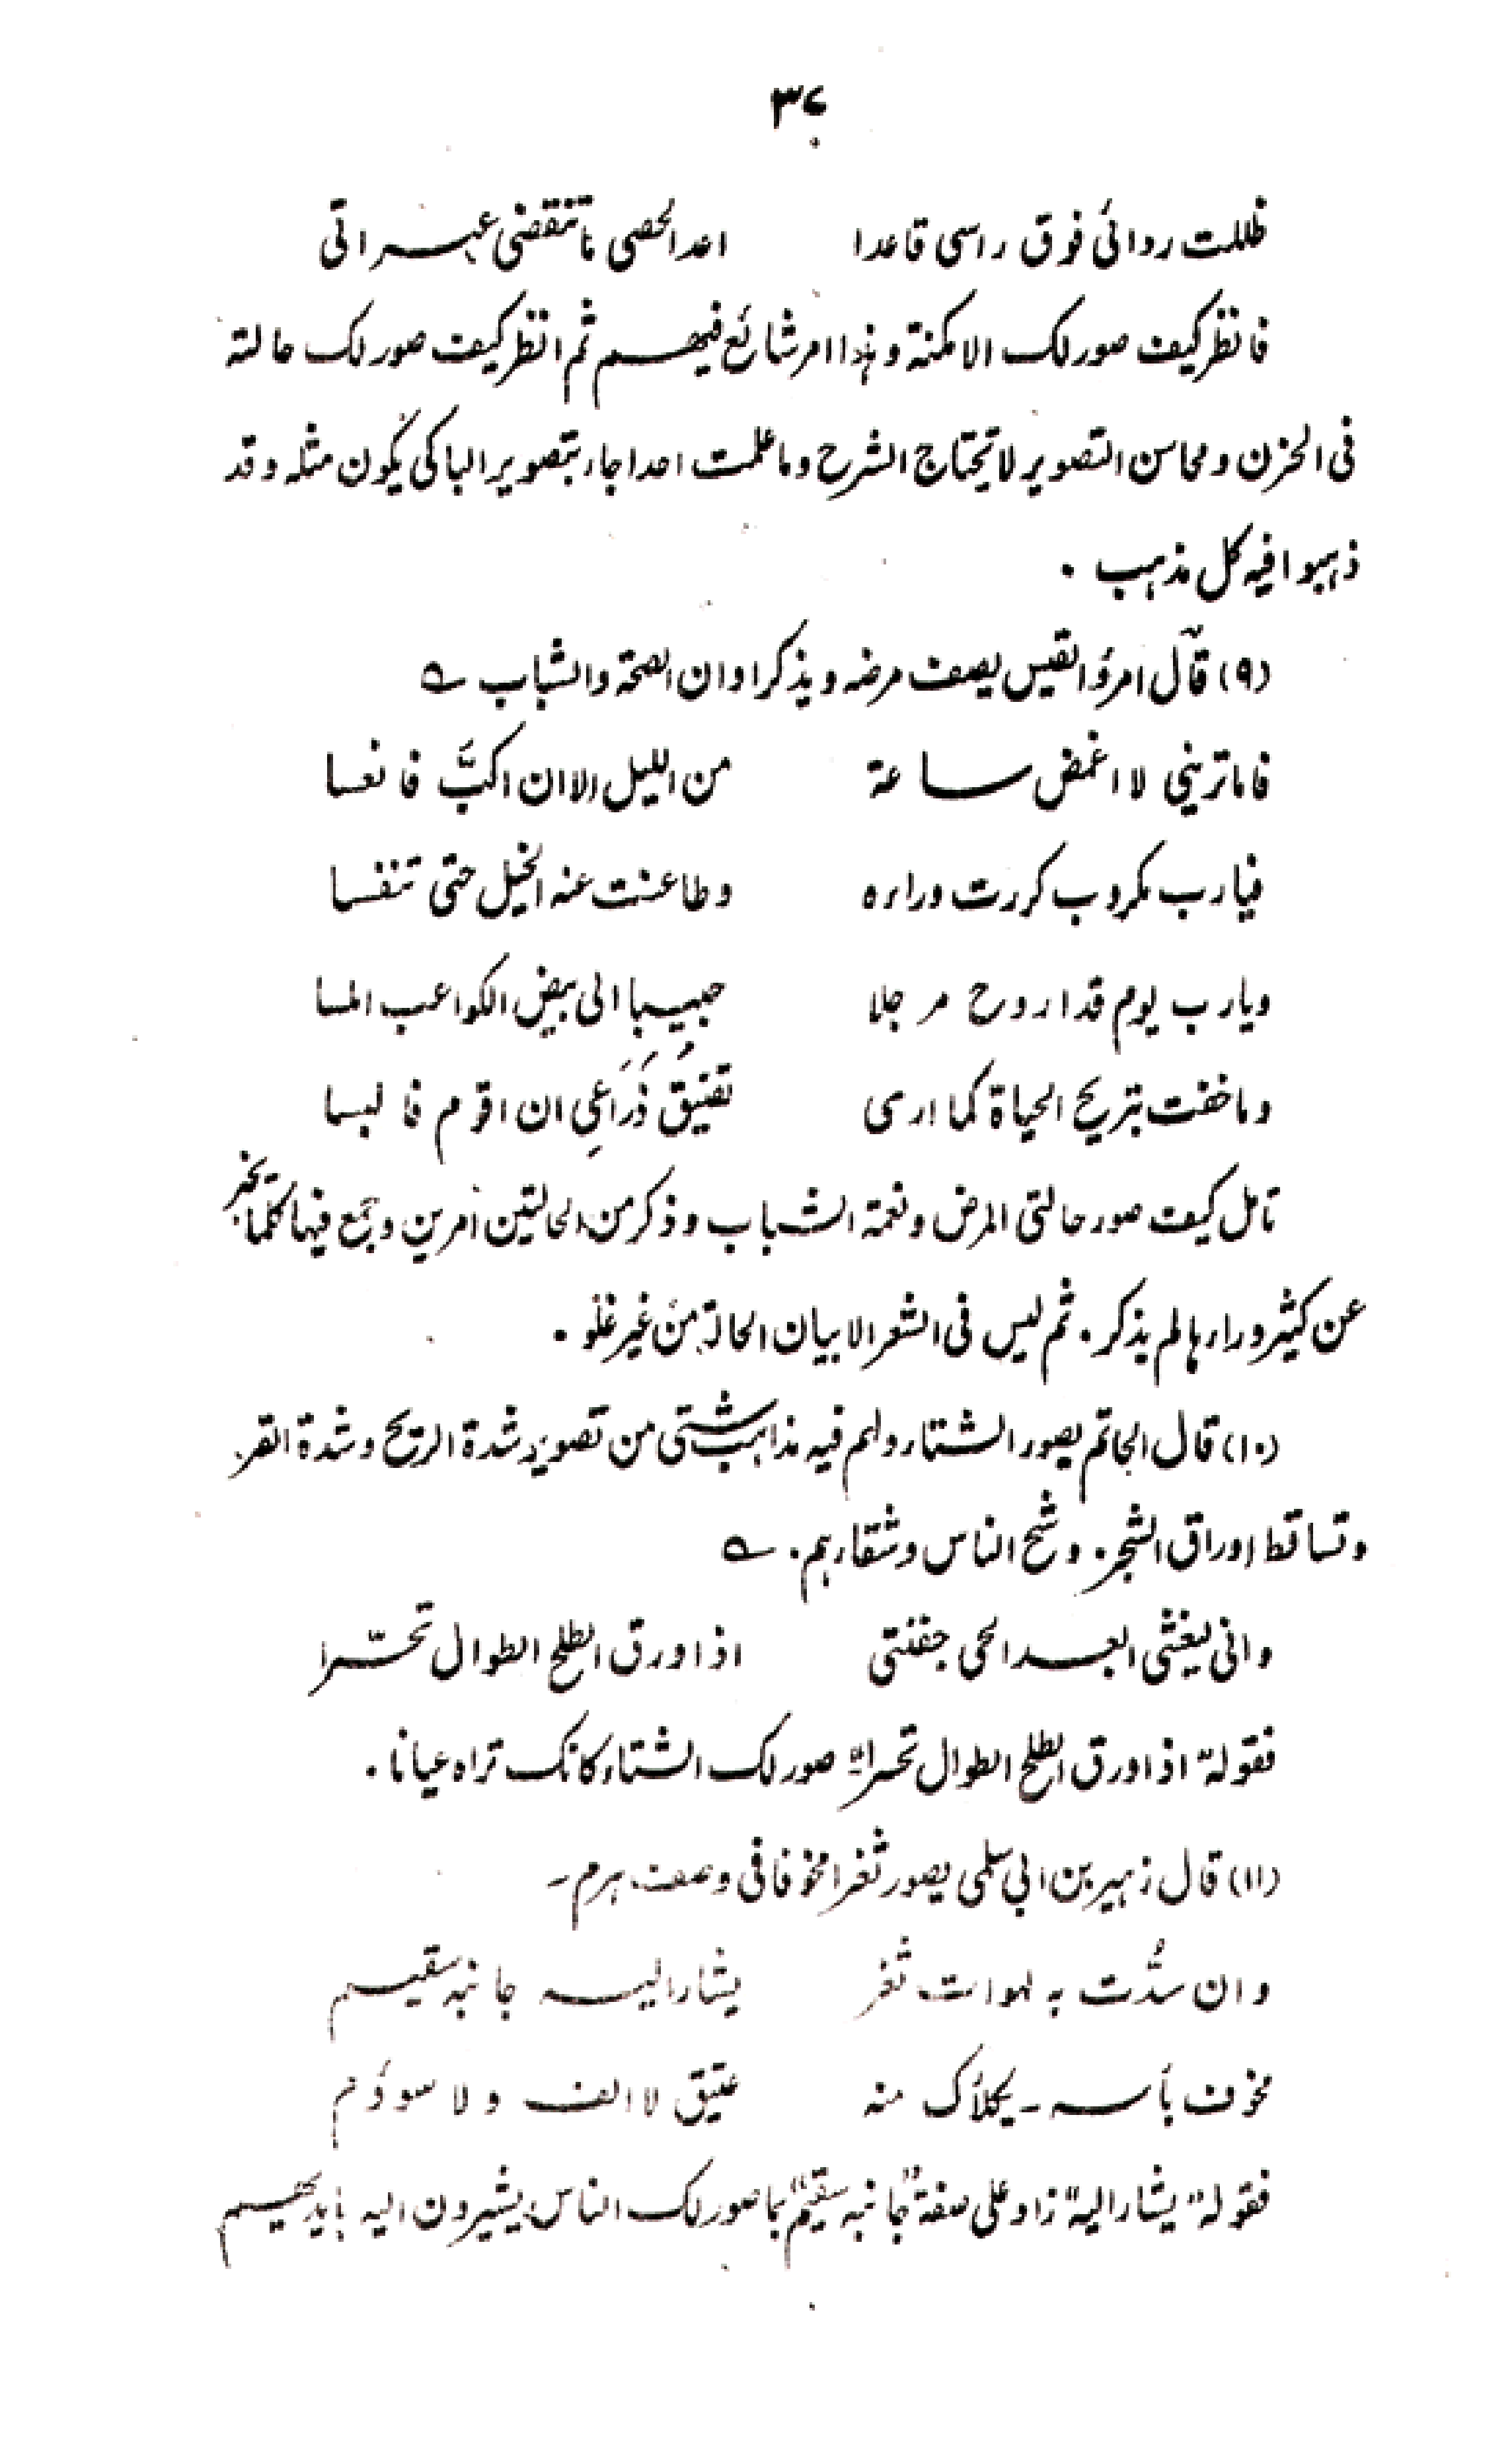 ۳۷
ظللت ردائی فوق راسی قاعدا اعد الحصی ما تنقضی عبراتی
فانظر کیف صور لک الامکنۃ وہذا امر شائع فیہم ثم انظر کیف صور لک حالتہ
فی الحزن ومحاسن التصویر لا تحتاج الشرح وما علمت احدا جاء بتصویر الباکی یکون مثلہ وقد
ذہبوا فیہ کل مذہب ۰
(۹) قال امرؤ القیس یصف مرضہ ویذکر اوان الصحۃ والشباب ؎
فاما ترینی لا اغمض ساعۃ من اللیل الا ان اکبَّ فانعسا
فیارب مکروب کررت وراءہ وطاعنت عنہ الخیل حتی تنفسا
ویارب یوم قد اروح مرجلا حبیبا الی بیض الکواعب املسا
وما خفت تبریح الحیاۃ کما اری تضیق ذراعی ان اقوم فالبسا
تامل کیف صور حالتی المرض ونعمۃ الشباب وذکر من الحالتین امرین وجمع فیہا کلما یخبر
عن کثیر وراءہا لم یذکر ۰ ثم لیس فی الشعر الا بیان الحالۃ من غیر غلو ۰
(۱۰) قال الحاتم یصور الشتاء ولہم فیہ مذاہب شتی من تصویر شدۃ الریح وشدۃ القر
وتساقط اوراق الشجر ۰ وشح الناس وشقاءہم ۰ ؎
وانی لیغشی ابعد الحی جفنتی اذا ورق الطلح الطوال تحسّرا
فقولہ "اذا ورق الطلح الطوال تحسرا" صور لک الشتاء کانک تراہ عیانا ۰
(۱۱) قال زہیر بن ابی سلمی یصور ثغرا مخوفا فی وصف ہرم ۔
وان سُدَّت بہ لہوات ثغر یشار الیہ جانبہ سقیم
مخوف بأسہ ۔ یکلأک منہ عتیق لا الف ولا سووُم
فقولہ "یشار الیہ" زاد علی صفۃ "جانبہ سقیم" بما صور لک الناس یشیرون الیہ بایدیہم